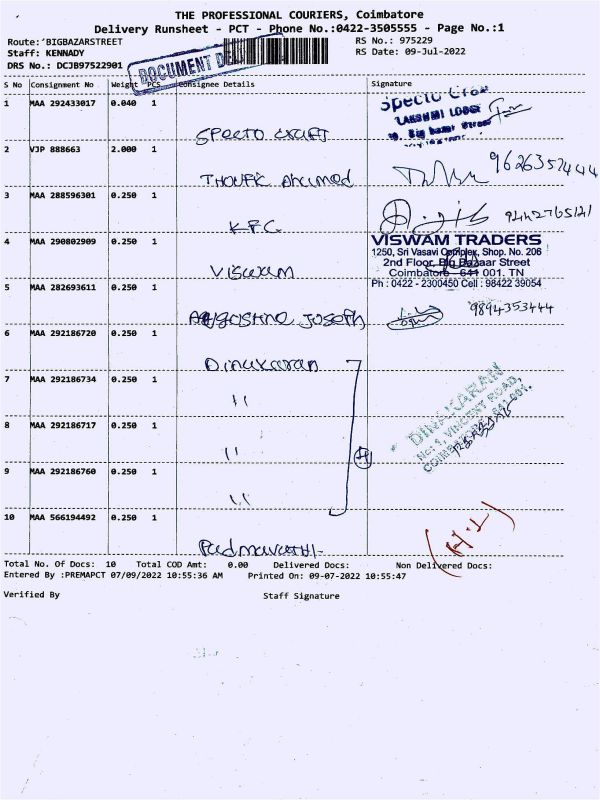 THE PROFESSIONAL COURIERS, Coimbatore
Delivery Runsheet - PCT - Phone No.:0422-3505555 - Page No.:1
Route:'BIGBAZARSTREET
RS No.: 975229
Staff: KENNADY
RS Date: 09-Jul-2022
DRS No.: DCJB97522901
DOCUMENT DE
S No Consignment No Weight PCS Consignee Details Signature
1 MAA 292433017 0.040 1
LAKSHMI LODGE
Big bazaar Street
2 VJP 888663 2.000 1
9626352444
3 MAA 288596301 0.250 1
KFC
9442765141
4 MAA 290802909 0.250 1
Viswam
VISWAM TRADERS
1250, Sri Vasavi Complex, Shop. No. 206
2nd Floor, Big Bazaar Street
Coimbatore - 641 001. TN
Ph : 0422 - 2300450 Cell : 98422 39054
5 MAA 282693611 0.250 1
Joseph
9894353444
6 MAA 292186720 0.250 1
Dinakaran
7 MAA 292186734 0.250 1
"
DINAKARAN
No: 1, VINCENT ROAD,
8 MAA 292186717 0.250 1
"
4
9 MAA 292186760 0.250 1
"
10 MAA 566194492 0.250 1
Padmavathi-
Total No. Of Docs: 10 Total COD Amt: 0.00 Delivered Docs: Non Delivered Docs:
Entered By :PREMAPCT 07/09/2022 10:55:36 AM Printed On: 09-07-2022 10:55:47
Verified By Staff Signature